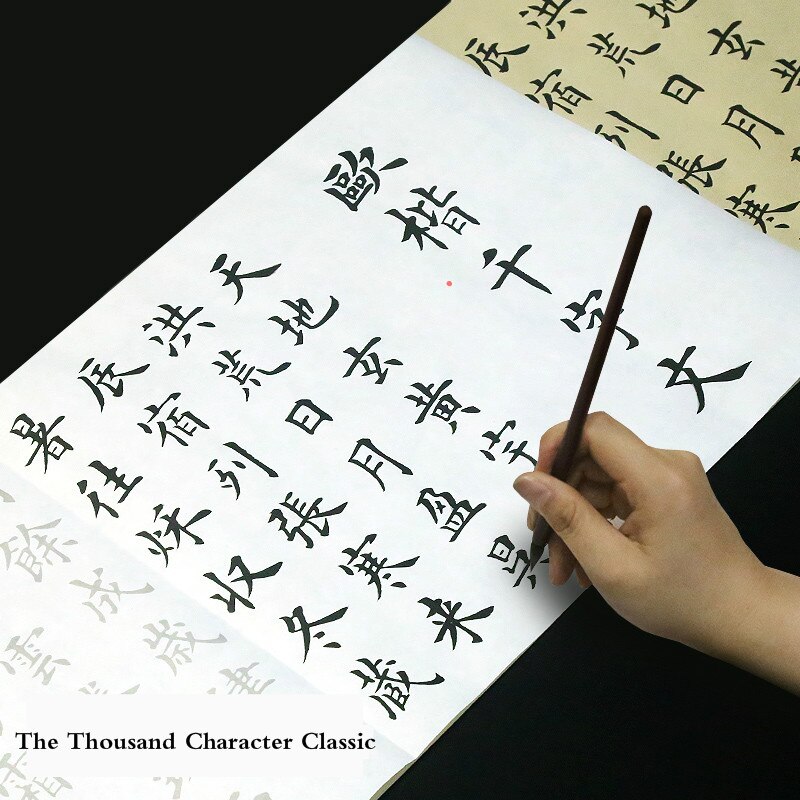 地玄黄
洪荒日月
辰宿列張寒
歐楷千字文
天地玄黄宇
洪荒日月盈昃
辰宿列張寒来
暑往秋收冬藏
餘成歲律
雲
The Thousand Character Classic